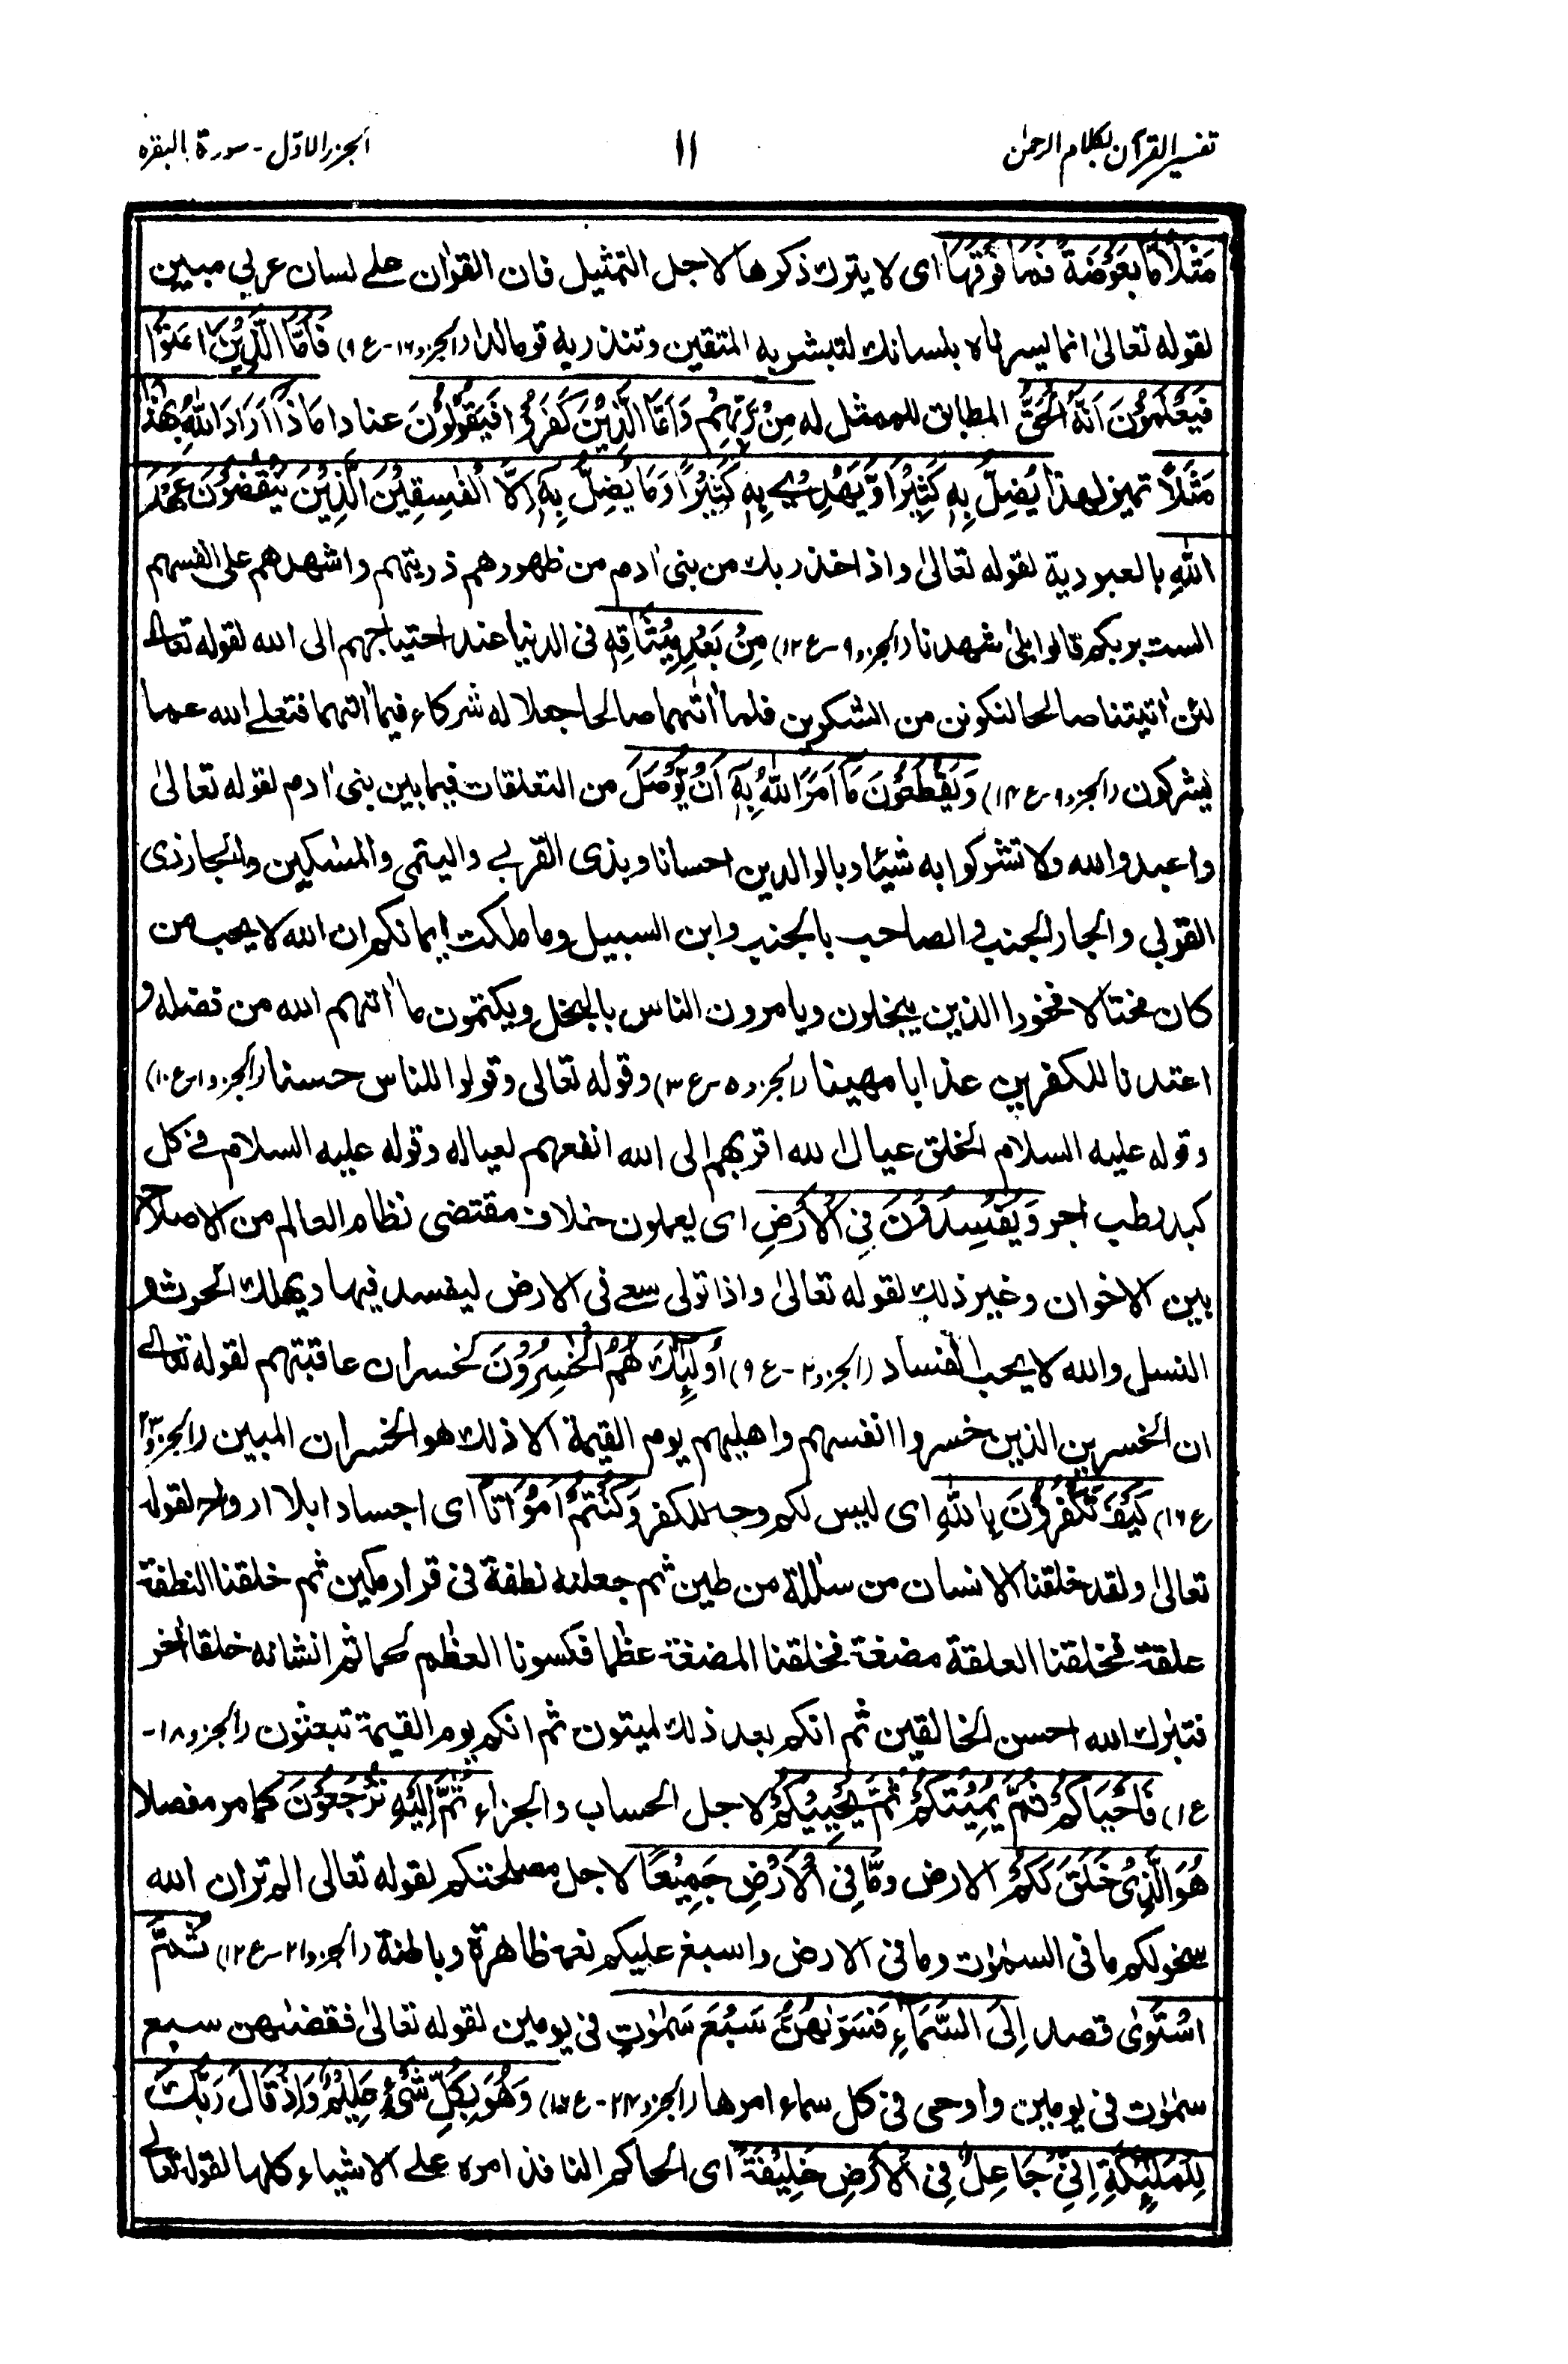 تفسير القرآن بكلام الرحمٰن ١١ الجزء الاوّل - سورة البقره
مَثَلًا مَّا بَعُوْضَةً فَمَا فَوْقَهَا اى لا يترك ذكرها لاجل التمثيل فان القرٰان على لسان عربي مبين
لقوله تعالىٰ انما يسرنٰه بلسانك لتبشر به المتقين وتنذر به قوما لدا (الجزو١٦-ع٩) فَاَمَّا الَّذِيْنَ اٰمَنُوْا
فَيَعْلَمُوْنَ اَنَّهُ الْحَقُّ المطابق للممثل له مِنْ رَّبِّهِمْ وَاَمَّا الَّذِيْنَ كَفَرُوْا فَيَقُوْلُوْنَ عنادا مَاذَا اَرَادَ اللّٰهُ بِهٰذَا
مَثَلًا تميز لهذا يُضِلُّ بِهٖ كَثِيْرًا وَّيَهْدِيْ بِهٖ كَثِيْرًا وَمَا يُضِلُّ بِهٖ اِلَّا الْفٰسِقِيْنَ الَّذِيْنَ يَنْقُضُوْنَ عَهْدَ
اللّٰهِ بالعبودية لقوله تعالىٰ واذ اخذ ربك من بنى اٰدم من ظهورهم ذريتهم واشهدهم على انفسهم
الست بربكم قالوا بلىٰ شهدنا (الجزو٩-ع١٢) مِنْ بَعْدِ مِيْثَاقِهٖ فى الدنيا عند احتياجهم الى الله لقوله تعالى
لئن اٰتيتنا صالحا لنكونن من الشكرين فلما اٰتٰهما صالحا جعلا له شركاء فيما اٰتٰهما فتعلى الله عما
يشركون (الجزو٩-ع١٤) وَيَقْطَعُوْنَ مَا اَمَرَ اللّٰهُ بِهٖٓ اَنْ يُّوْصَلَ من التعلقات فيما بين بنى اٰدم لقوله تعالىٰ
واعبدوا الله ولا تشركوا به شيئا وبالوالدين احسانا وبذى القربى واليتمى والمسٰكين والجار ذى
القربى والجار الجنب والصاحب بالجنب وابن السبيل وما ملكت ايمانكم ان الله لا يحب من
كان مختالا فخورا الذين يبخلون ويامرون الناس بالبخل ويكتمون ما اٰتٰهم الله من فضله و
اعتدنا للكفرين عذابا مهينا (الجزو٥-ع٣) وقوله تعالى وقولوا للناس حسنا (الجزو١-ع١٠)
وقوله عليه السلام الخلق عيال الله اقربهم الى الله انفعهم لعياله وقوله عليه السلام فى كل
كبد رطب اجر وَيُفْسِدُوْنَ فِى الْاَرْضِ اى يعملون خلاف مقتضى نظام العالم من الاصلاح
بين الاخوان وغير ذلك لقوله تعالىٰ واذا تولى سعى فى الارض ليفسد فيها ويهلك الحرث و
النسل والله لا يحب الفساد (الجزو٢-ع٩) اُولٰٓئِكَ هُمُ الْخٰسِرُوْنَ لخسران عاقبتهم لقوله تعالى
ان الخسرين الذين خسروا انفسهم واهليهم يوم القيٰمة الا ذلك هو الخسران المبين (الجزو٢٣
ع١٦) كَيْفَ تَكْفُرُوْنَ بِاللّٰهِ اى ليس لكم وجه للكفر وَكُنْتُمْ اَمْوَاتًا اى اجسادا بلا ارواح لقوله
تعالىٰ ولقد خلقنا الانسان من سلٰلة من طين ثم جعلنه نطفة فى قرار مكين ثم خلقنا النطفة
علقة فخلقنا العلقة مضغة فخلقنا المضغة عظٰما فكسونا العظٰم لحما ثم انشانه خلقا اٰخر
فتبٰرك الله احسن الخالقين ثم انكم بعد ذلك لميتون ثم انكم يوم القيمة تبعثون (الجزو١٨-
ع١) فَاَحْيَاكُمْ ثُمَّ يُمِيْتُكُمْ ثُمَّ يُحْيِيْكُمْ لاجل الحساب والجزاء ثُمَّ اِلَيْهِ تُرْجَعُوْنَ كما مر مفصلا
هُوَ الَّذِىْ خَلَقَ لَكُمْ الارض ومَّا فِى الْاَرْضِ جَمِيْعًا لاجل مصلحتكم لقوله تعالى الم تر ان الله
سخر لكم ما فى السمٰوٰت وما فى الارض واسبغ عليكم نعمه ظاهرة وباطنة (الجزو٢١-ع١٢) ثُمَّ
اسْتَوٰى قصد اِلَى السَّمَاءِ فَسَوّٰىهُنَّ سَبْعَ سَمٰوٰتٍ فى يومين لقوله تعالىٰ فقضٰىهن سبع
سمٰوٰت فى يومين واوحى فى كل سماء امرها (الجزو٢٤-ع١٦) وَهُوَ بِكُلِّ شَىْءٍ عَلِيْمٌ وَاِذْ قَالَ رَبُّكَ
لِلْمَلٰٓئِكَةِ اِنِّىْ جَاعِلٌ فِى الْاَرْضِ خَلِيْفَةً اى الحاكم النافذ امره على الاشياء كلها لقوله تعالى